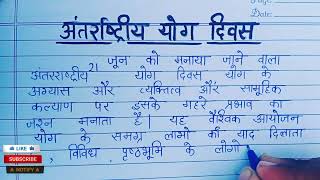 Page
Date
अंतर्राष्ट्रीय योग दिवस
21 जून को मनाया जाने वाला
अंतरराष्ट्रीय योग दिवस योग के
अभ्यास और व्यक्तित्व और सामूहिक
कल्याण पर इसके गहरे प्रभाव का
जश्न मनाता है | यह वैश्विक आयोजन
योग के समग्र लाभों की याद दिलाता
, विविध पृष्ठभूमि के लोगो
LIKE
SUBSCRIBE
NOTIFY